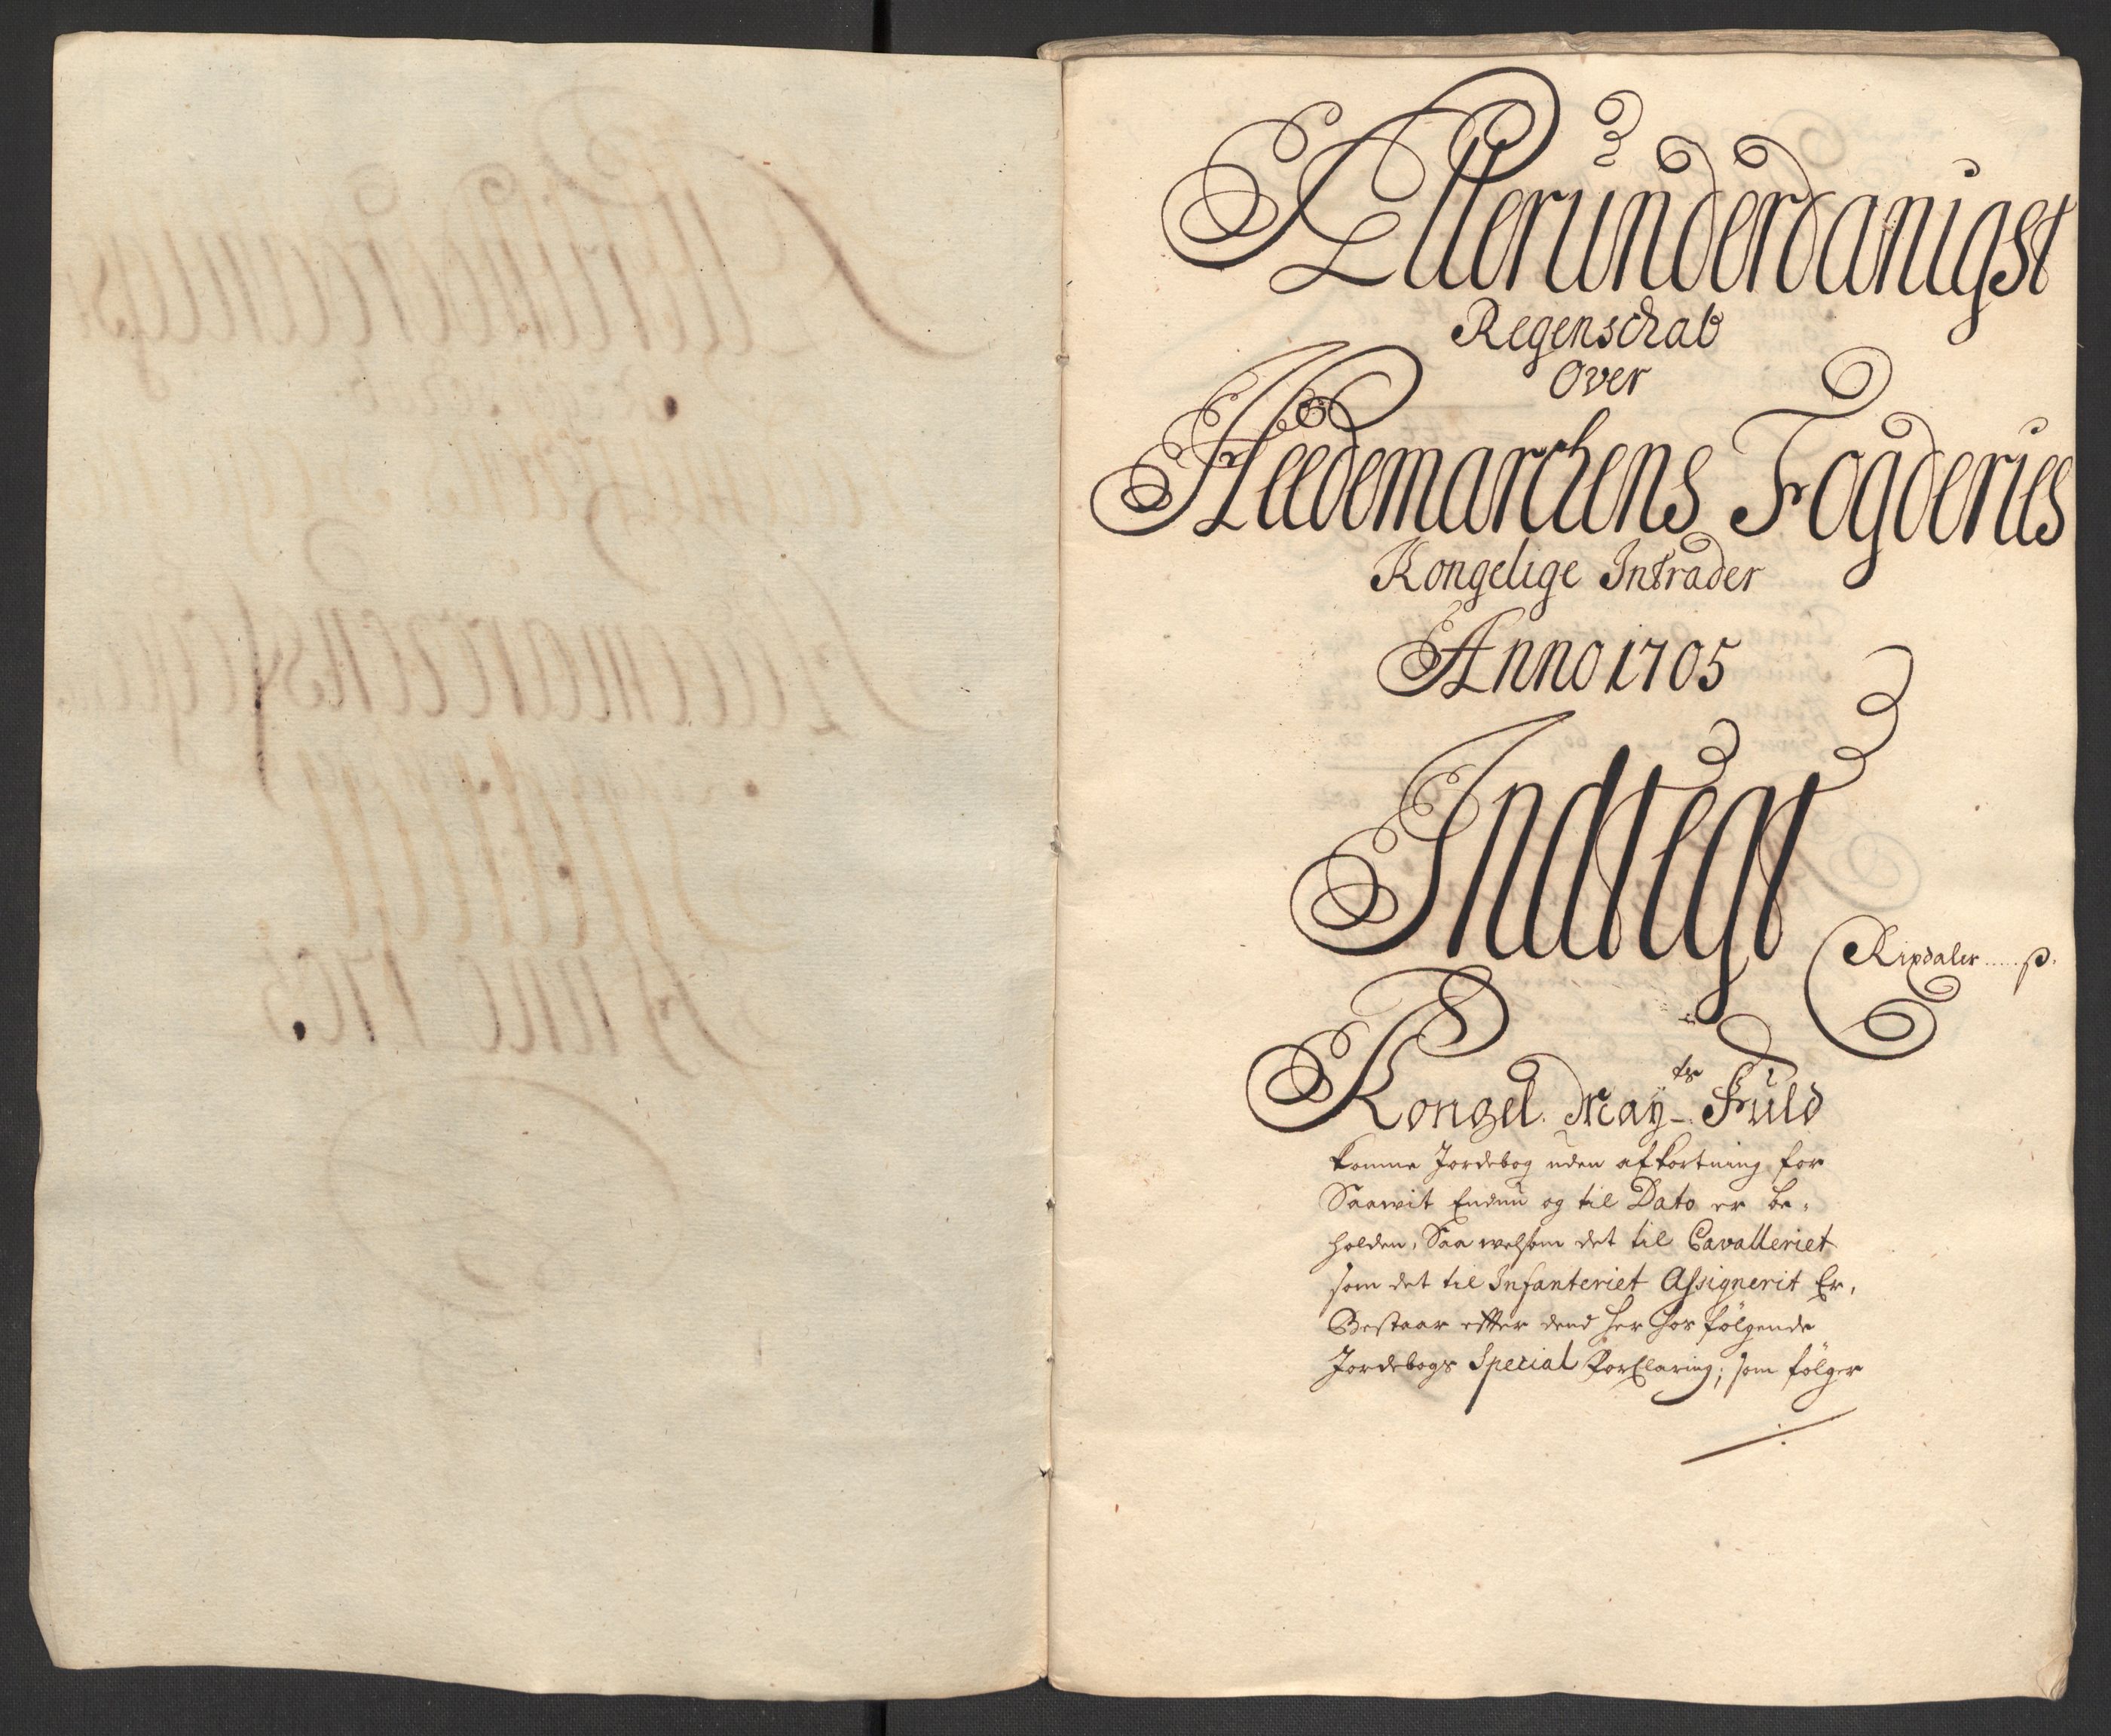 Allerunderdanigst
Regenschab
Over
Heedemarchens Fogderies
Kongelige Intrader
Anno 1705
Indtegt
Rixdaler ..... ß.
Kongel. May.ts Fuld
komne Jordebog uden afkortning for
Saawit Endnu og til Dato er be,
holden, Saa welsom det til Cavalleriet
som det til Infanteriet Assignerit Er,
Bestaar effter dend her hos følgende
Jordebogs Special Forklaring; som følger